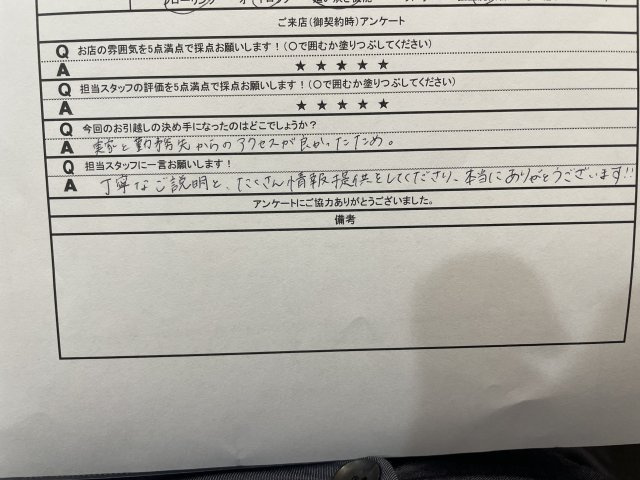 ご来店(御契約時)アンケート
Q お店の雰囲気を5点満点で採点お願いします!(〇で囲むか塗りつぶしてください)
A ★ ★ ★ ★ ★
Q 担当スタッフの評価を5点満点で採点お願いします!(〇で囲むか塗りつぶしてください)
A ★ ★ ★ ★ ★
Q 今回のお引越しの決め手になったのはどこでしょうか?
A 実家と勤務先からのアクセスが良かったため。
Q 担当スタッフに一言お願いします!
A 丁寧なご説明と、たくさん情報提供をしてくださり、本当にありがとうございます!!
アンケートにご協力ありがとうございました。
備考